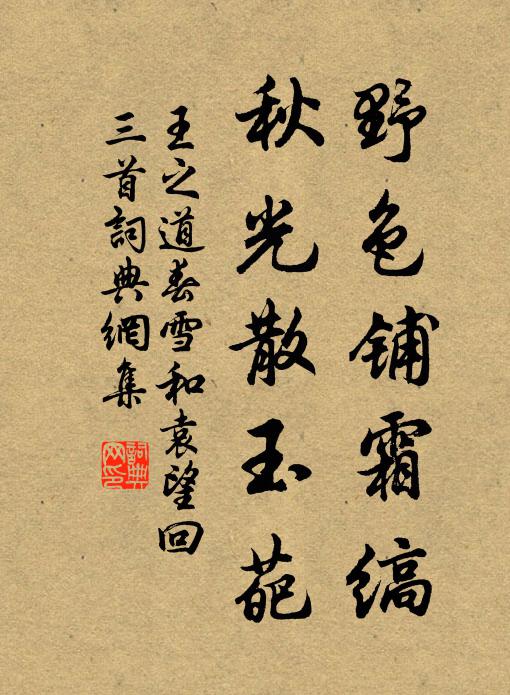 野色铺霜缟
秋光散玉葩
王之道春雪和袁望回
三首詞典網集
詞典网印